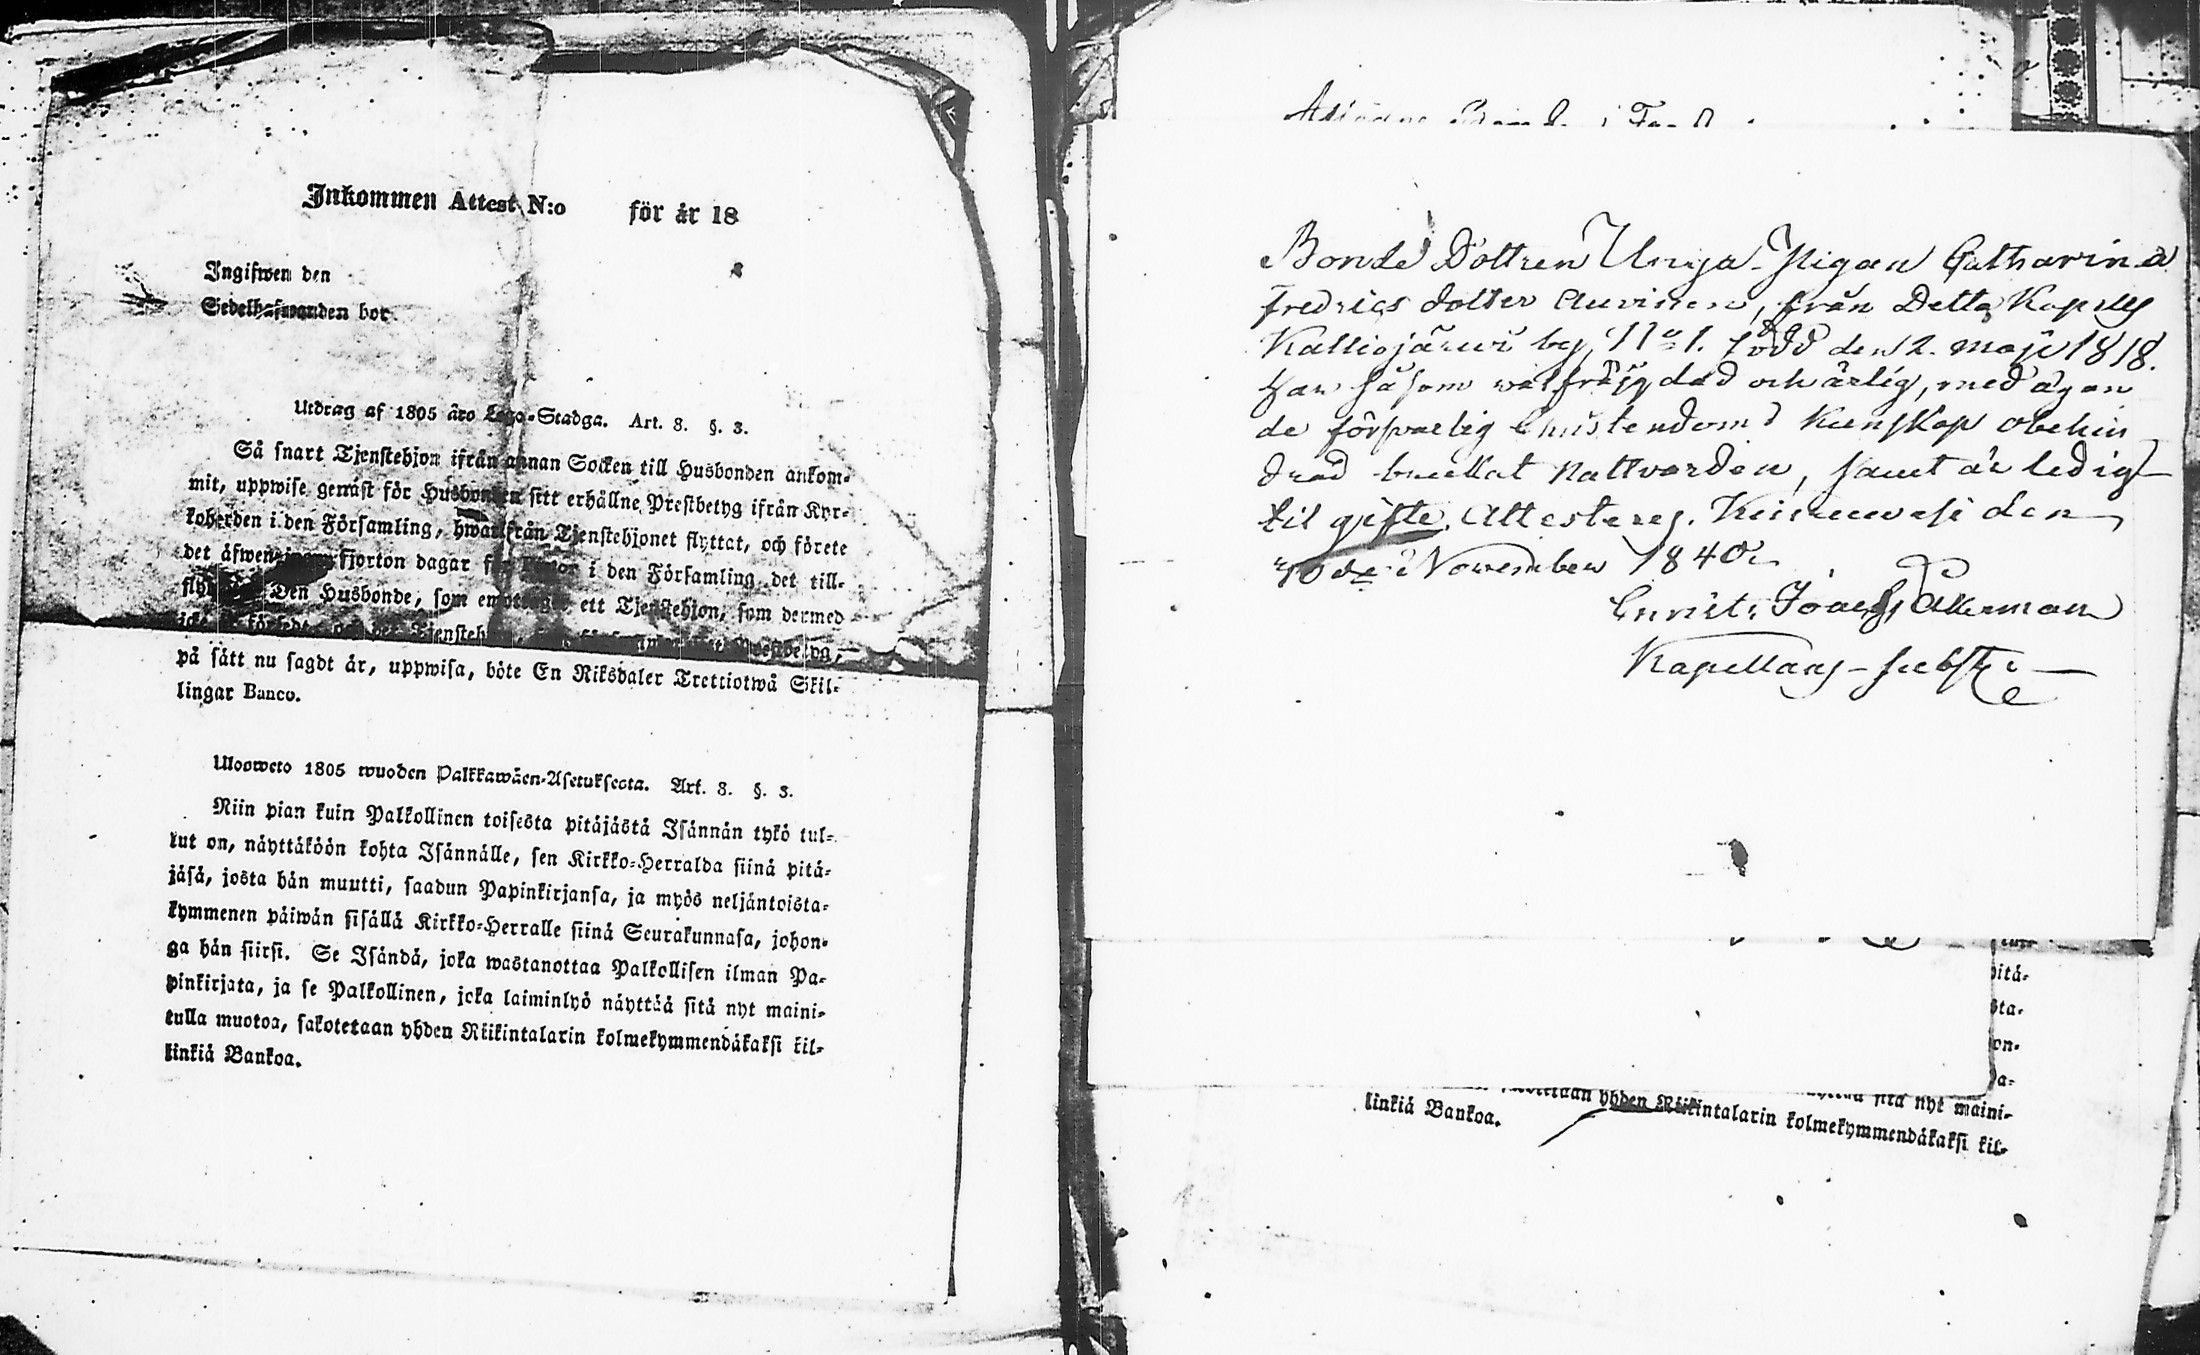 Inkommen Attest N:o för år 18
Ingifwen den
Sedelhafwanden bor
Utdrag af 1805 års Lego-Stadga. Art. 8. §. 3.
Så snart Tjenstehjon ifrån annan Socken till Husbonden ankom-
mit, uppwise genast för Husbonden sitt erhållne Prestbetyg ifrån Kyr-
koherden i den Församling, hwarifrån Tjenstehjonet flyttat, och förete
det äfwen fjorton dagar för i den Församling det till-
Den Husbonde, som emottager ett Tjenstehjon, som dermed
Prestbetyg,
på sått nu sagdt är, uppwisa, böte En Riksdaler Trettiotwå Skil-
lingar Banco.
Ulosweto 1805 wuoden Palkkawäen-Asetuksesta. Art. 8. §. 3.
Niin pian kuin Palkollinen toisesta pitäjästä Isännän tykö tul-
lut on, näyttäköön kohta Isännälle, sen Kirkko-Herralda siinä pitä-
jäsä, josta hän muutti, saadun Papinkirjansa, ja myös neljäntoista-
kymmenen päiwän sisällä Kirkko-Herralle siinä Seurakunnasa, johon-
ga hän siirsi. Se Isändä, joka wastanottaa Palkollisen ilman Pa-
pinkirjata, ja se Palkollinen, joka laiminlyö näyttää sitä nyt maini-
tulla muotoa, sakotetaan yhden Riikintalarin kolmekymmendäkaksi kil-
linkiä Bankoa.
Bonde Dottren Unga Pigan Catharina
Fredrics dotter Auvinen, från Detta Kapells
Kalliojärwi by, No 1. född den 2. Maji 1818.
Har såsom wälfrägdad och ärlig, med ägan
de förswarlig Christendoms Kunskap obehin
drad bruckat Nattvarden, samt är ledig
til gifte. Attesteres. Kiurewesi den
30de November 1840.
Christ: Joach: Akerman
Kapellans-subst:
pitä-
sta-
on-
a-
sitä nyt maini-
yhden Riikintalarin kolmekymmendäkaksi kil-
linkiä Bankoa.